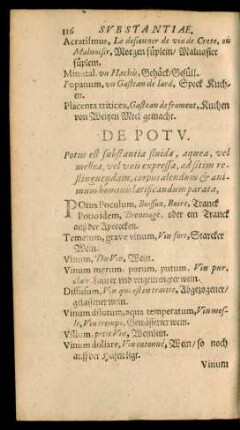 116 SVBSTANTIAE.
Acratismus, Le desieuner de vin de Crete, ou
Maluoisie, Morgen süplein/ Maluasier
süplein.
Minutal, vn Hachis, Gehäck/Gefüll.
Popanum, vn Gasteau de lard, Speck Kuchen.
Placenta triticea, Gasteau de froment, Kuchen
von Weitzen Meel gemacht.
DE POTV.
Potus est substantia fluida, aquea, vel
mellea, vel vini expressa, ad sitim restinguendam,
corpus alendum & animum
hominis laetificandum parata,
POtus Poculum, Boisson, Boire, Tranck
Potioidem, Breuuage. oder ein Tranck
auß der Apotecken.
Temetum, graue vinum, Vin fort, Starcker
Wein.
Vinum, Du Vin, Wein.
Vinum merum, putum, putum, Vin pur,
lauter vnd
Diffusum, Vin qui est en traitte, Abgezogener/
wein.
Vinum dilutum, aqua temperatum, Vin meslé,
Vin trempé, Gewässerter wein.
Villum, petit Vin, Weinlein.
Vinum doliare, Vin entonné, Wein/ so noch
auff der ligt.
Vinum